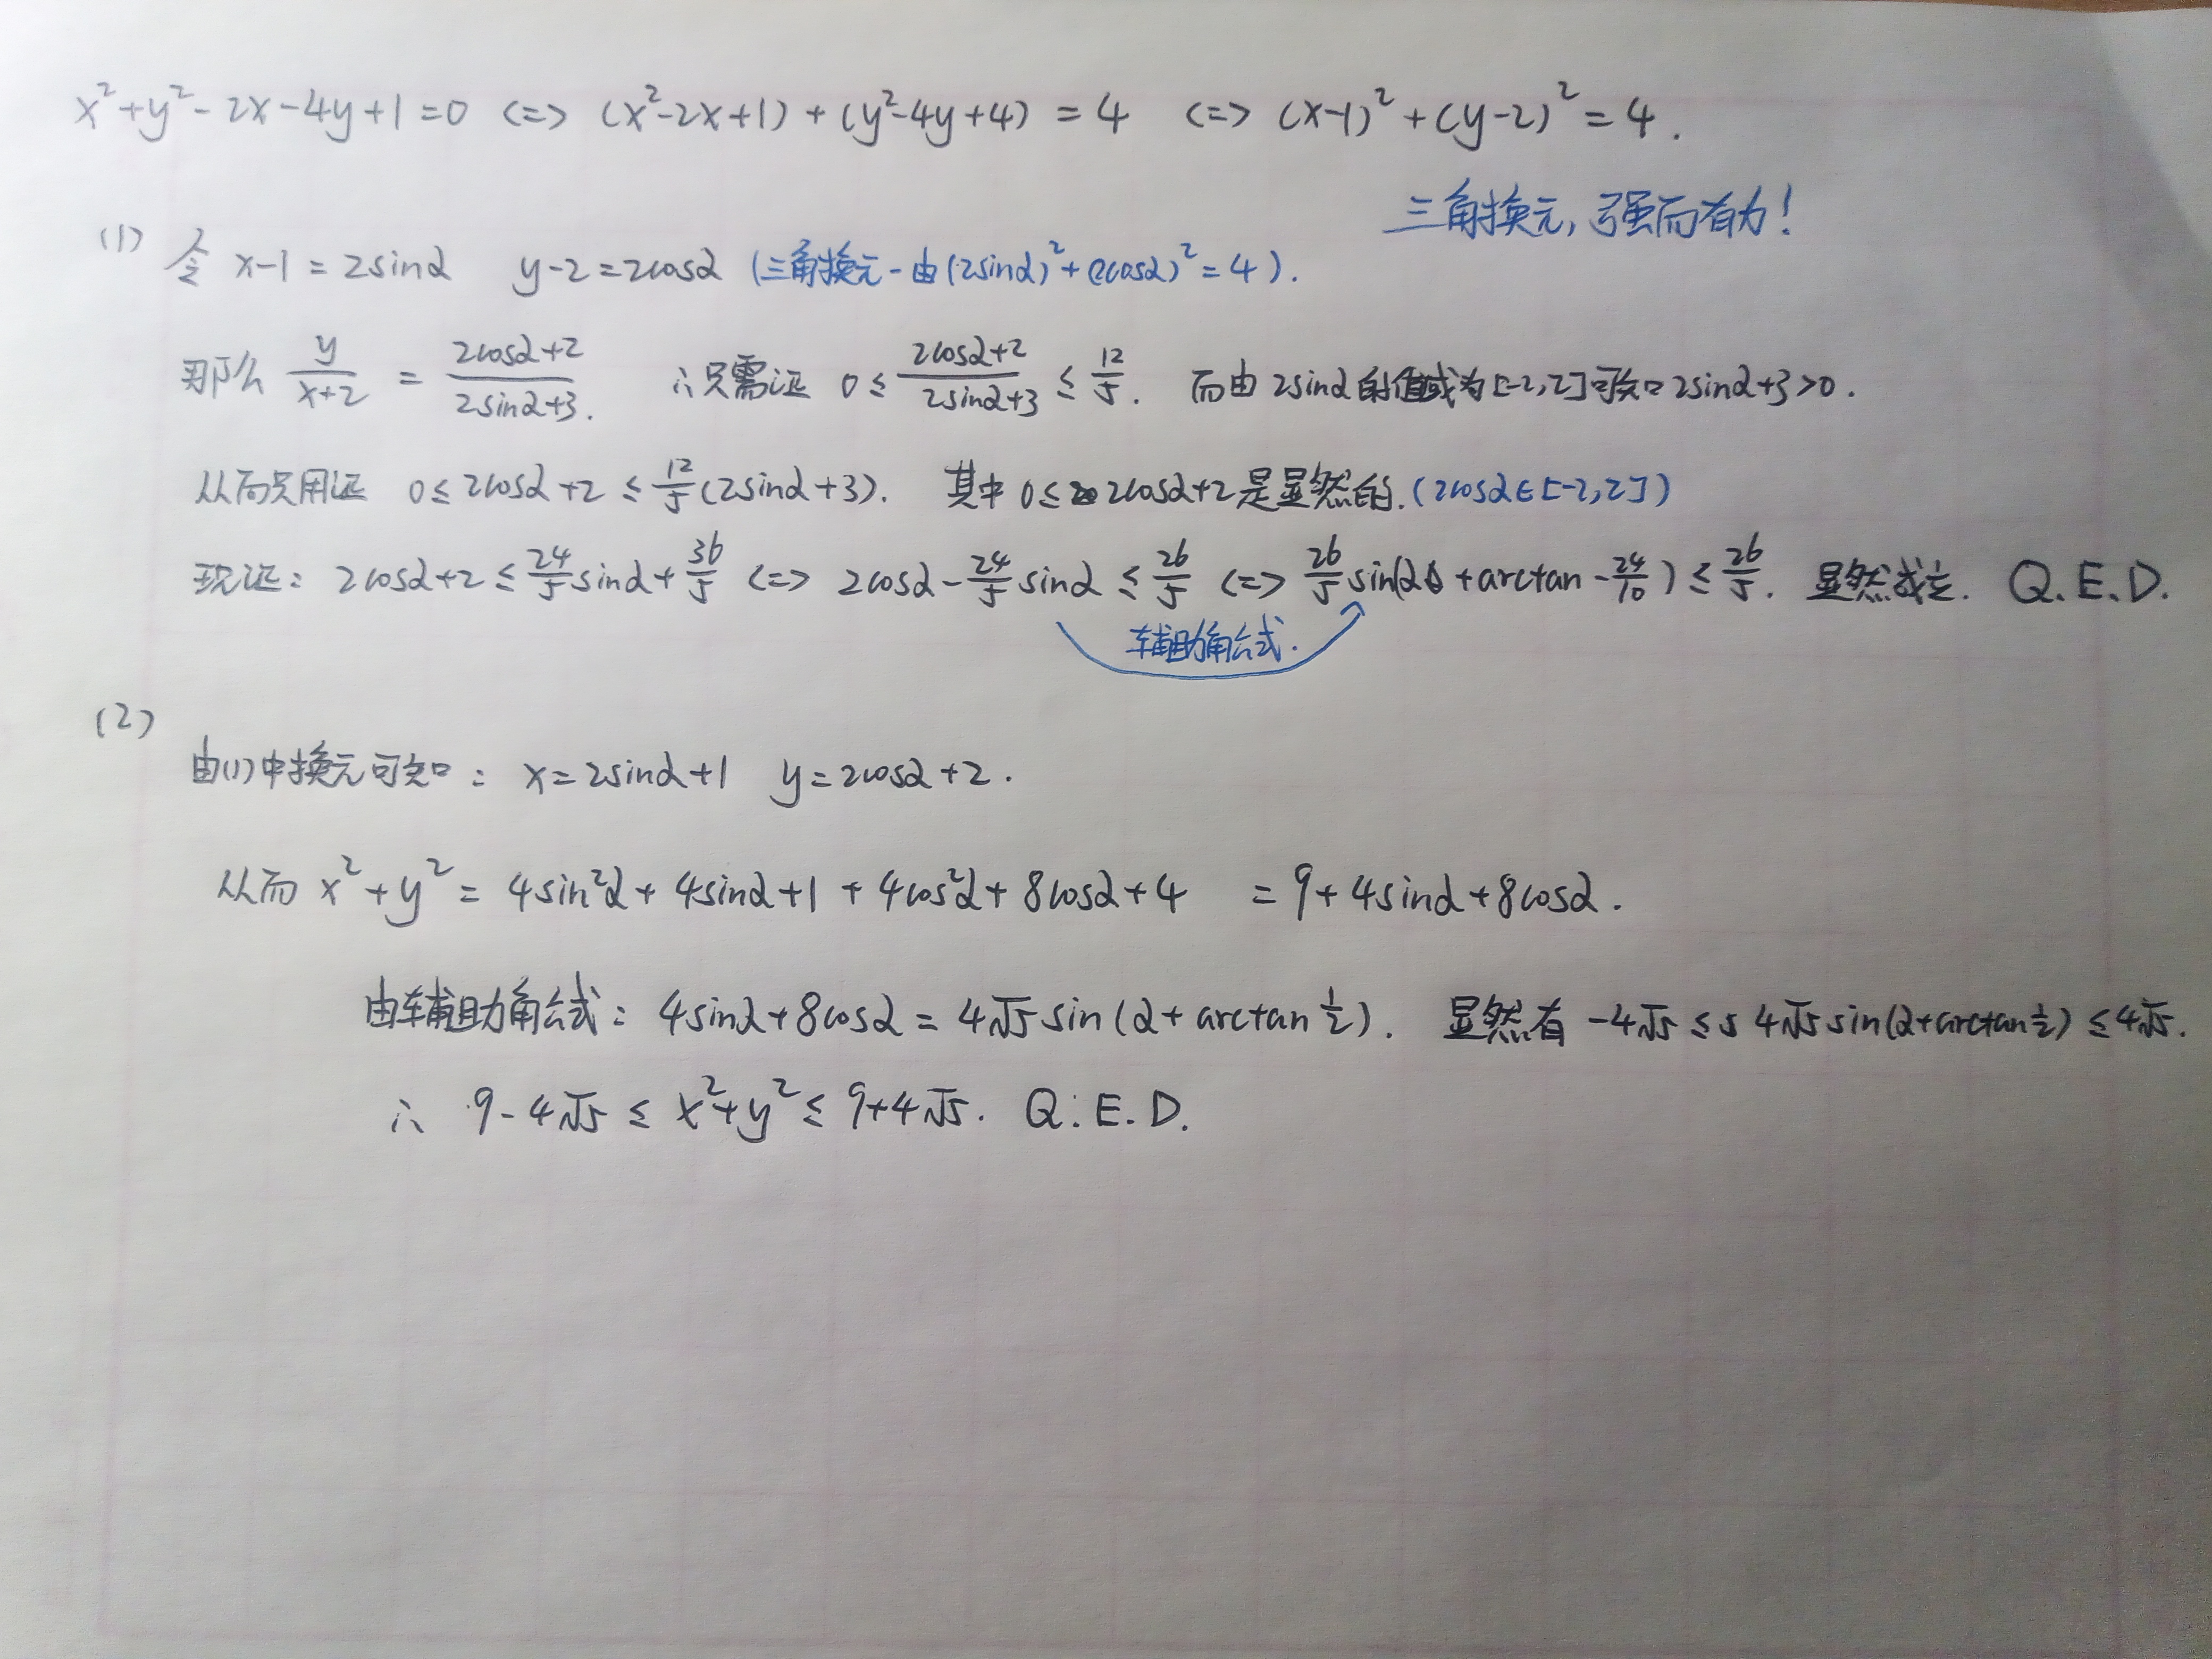 x²+y²-2x-4y+1=0 <=> (x²-2x+1)+(y²-4y+4)=4 <=> (x-1)²+(y-2)²=4.
三角换元,强而有力!
(1) 令 x-1=2sinα y-2=2cosα (三角换元-由(2sinα)²+(2cosα)²=4).
那么 y/(x+2) = (2cosα+2)/(2sinα+3). ∴只需证 0≤(2cosα+2)/(2sinα+3)≤12/5. 而由2sinα的值域为[-2,2]可知2sinα+3>0.
从而只用证 0≤2cosα+2≤12/5(2sinα+3). 其中0≤2cosα+2是显然的.(2cosα∈[-2,2])
现证: 2cosα+2≤24/5sinα+36/5 <=> 2cosα-24/5sinα≤26/5 <=> 26/5sin(α+arctan-24/10)≤26/5. 显然成立. Q.E.D.
辅助角公式.
(2)
由(1)中换元可知: x=2sinα+1 y=2cosα+2.
从而 x²+y²=4sin²α+4sinα+1+4cos²α+8cosα+4 =9+4sinα+8cosα.
由辅助角公式: 4sinα+8cosα=4√5sin(α+arctan1/2). 显然有 -4√5≤4√5sin(α+arctan1/2)≤4√5.
∴ 9-4√5≤x²+y²≤9+4√5. Q.E.D.